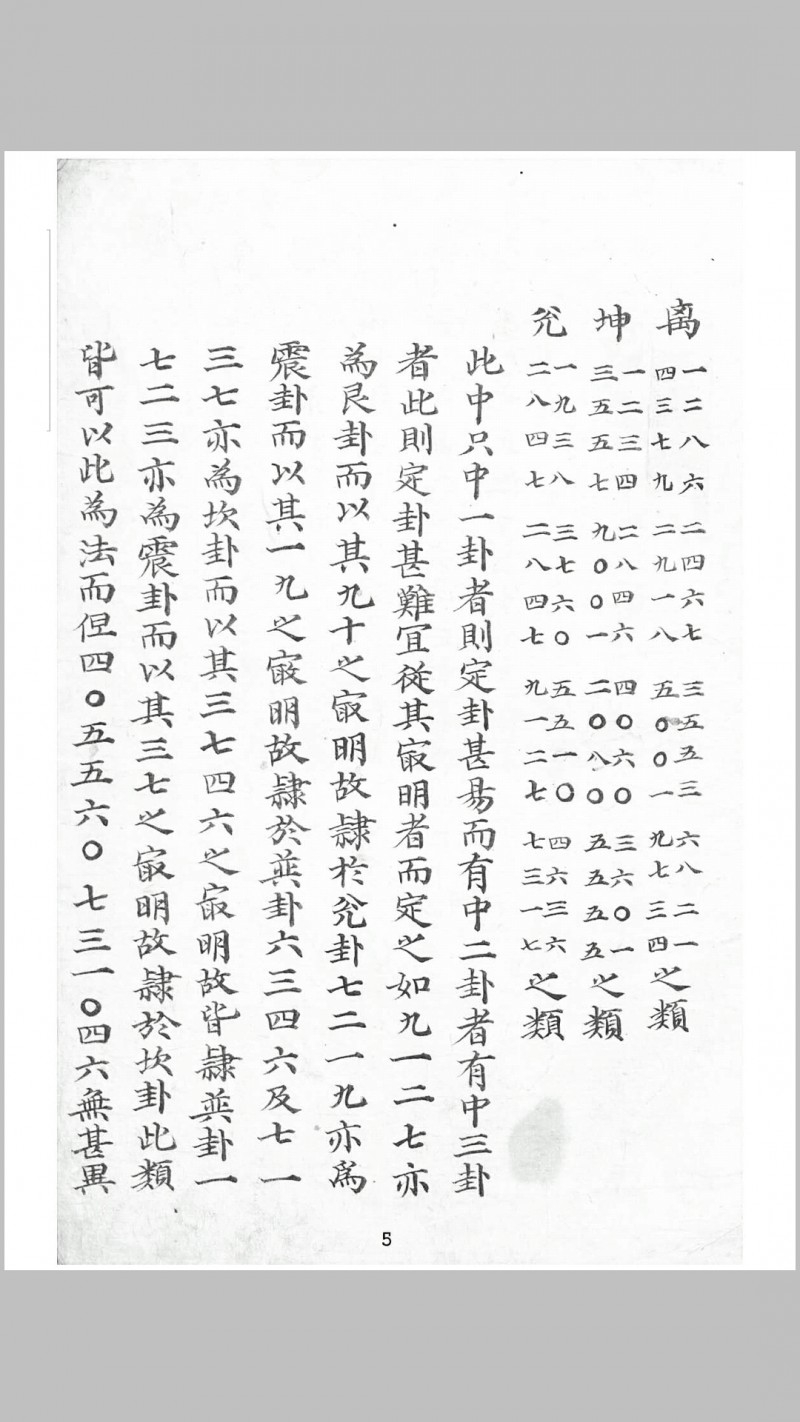 离 一二八六 四三七九 二四六七 二九一八 三五五三 五〇〇一 六八二一 九七三四 之類
坤 一二三四 三五五七 二八四六 九〇〇一 四〇六〇 二〇八〇 三六〇一 五五五五 之類
兊 一九三八 二八四七 三七六〇 二八四七 五五一〇 九一二七 四六三六 七三一七 之類
此中只中一卦者則定卦甚易而有中二卦者有中三卦
者此則定卦甚難冝從其㝡明者而定之如九一二七亦
為艮卦而以其九十之㝡明故隷於兊卦七二一九亦爲
震卦而以其一九之㝡明故隷於㢲卦六三四六及七一
三七亦為坎卦而以其三七四六之㝡明故皆隷㢲卦一
七二三亦為震卦而以其三七之㝡明故隷於坎卦此類
皆可以此為法而但四〇五五六〇七三一〇四六無甚異
5